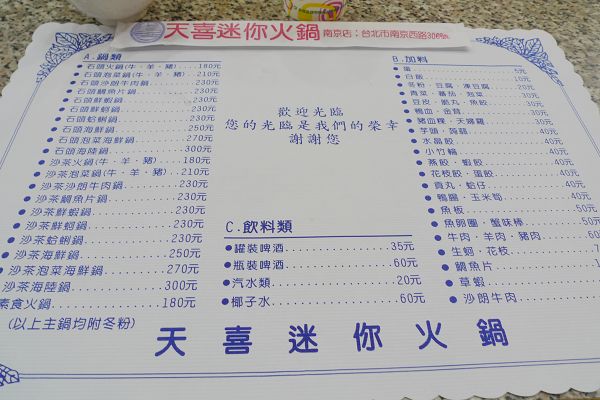 天喜迷你火鍋 南京店：台北市南京西路306號
A.鍋類
石頭火鍋(牛、羊、豬)......180元
石頭泡菜鍋(牛、羊、豬)...210元
石頭沙朗牛肉鍋......230元
石頭鯛魚片鍋......230元
石頭鮮蝦鍋......230元
石頭鮮蚵鍋......230元
石頭蛤蜊鍋......230元
石頭海鮮鍋......250元
石頭泡菜海鮮鍋......270元
石頭海陸鍋......300元
沙茶火鍋(牛、羊、豬)......180元
沙茶泡菜鍋(牛、羊、豬)...210元
沙茶沙朗牛肉鍋......230元
沙茶鯛魚片鍋......230元
沙茶鮮蝦鍋......230元
沙茶鮮蚵鍋......230元
沙茶蛤蜊鍋......230元
沙茶海鮮鍋......250元
沙茶泡菜海鮮鍋......270元
沙茶海陸鍋......300元
素食火鍋......180元
(以上主鍋均附冬粉)
歡迎光臨
您的光臨是我們的榮幸
謝謝您
C.飲料類
罐裝啤酒......35元
瓶裝啤酒......60元
汽水類......20元
椰子水......60元
B.加料
蛋......5元
白飯......10元
冬粉、豆腐、凍豆腐......20元
青菜、蕃茄、泡菜......30元
豆皮、脆丸、魚餃......30元
鴨血、金菇......30元
豬血糕、天婦羅......30元
芋頭、蒟蒻......40元
水晶餃......40元
小竹輪......40元
燕餃、蝦餃......40元
花枝餃、蛋餃......40元
貢丸、蛤仔......40元
鴨腸、玉米筍......40元
魚板......50元
魚卵圈、蟹味棒......50元
牛肉、羊肉、豬肉......60元
生蚵、花枝......7
鯛魚片......1
草蝦
沙朗牛肉
天喜迷你火鍋